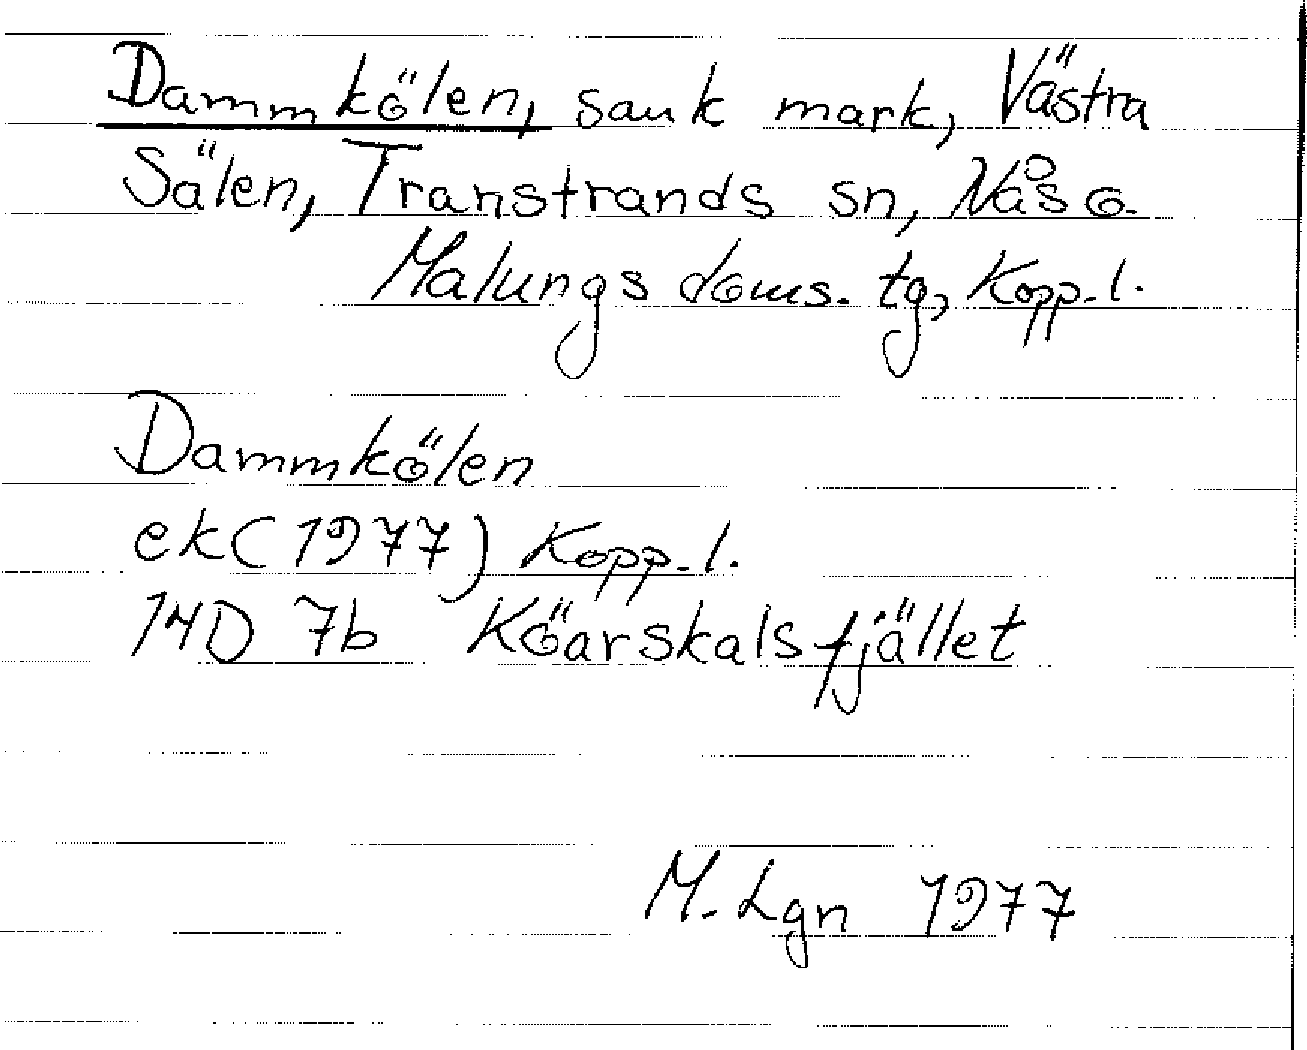 Dammkölen, sank mark, Västra
Sälen, Transtrands sn, Nås o.
Malungs doms. tg, Kopp. l.
Dammkölen
ek (1977) Kopp. l.
14D 7b Köarskalsfjället
M. Lgn 1977